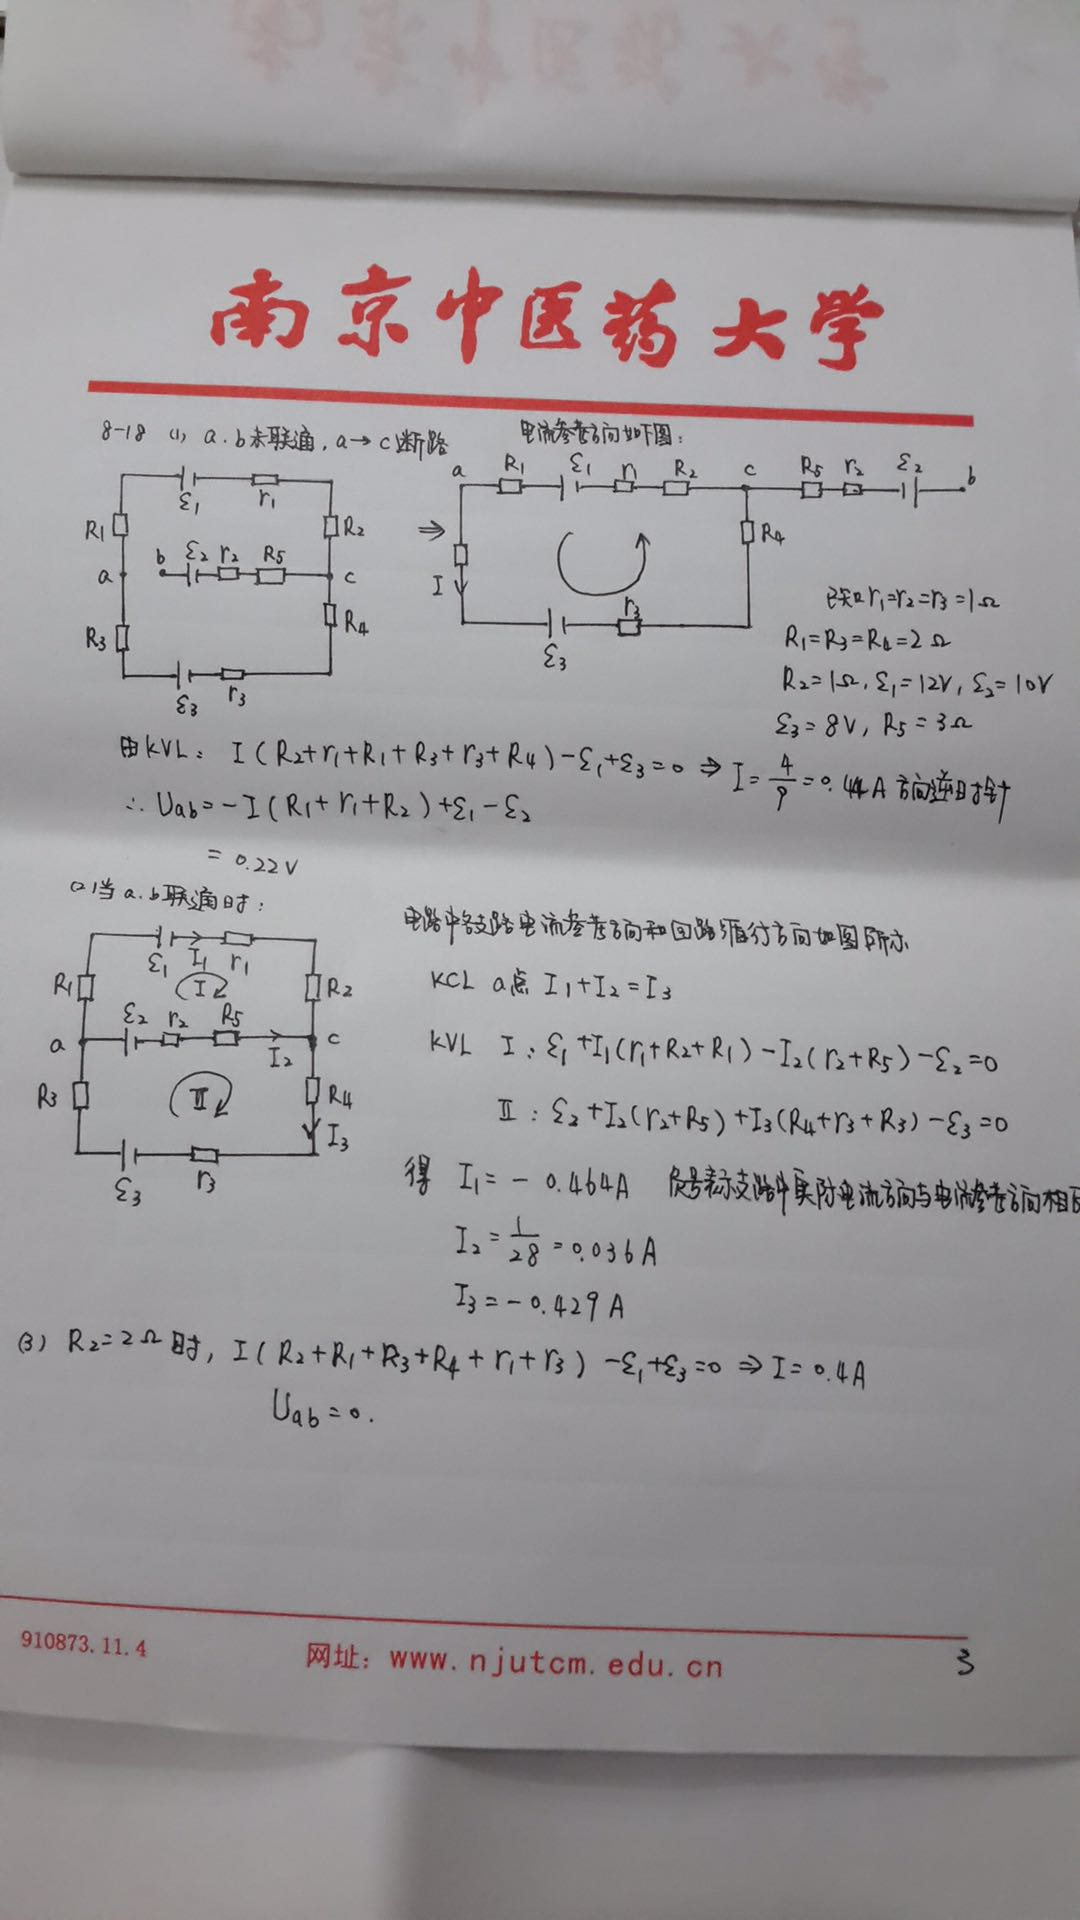 南京中医药大学
8-18 (1) a.b未联通,a→c断路
电流参考方向如下图:
ε1 r1
R1 R2
a b ε2 r2 R5 c
R3 R4
ε3 r3
⇒
a R1 ε1 r1 R2 c R5 r2 ε2 b
R4
I
r3
ε3
已知r1=r2=r3=1Ω
R1=R3=R4=2Ω
R2=1Ω, ε1=12V, ε2=10V
ε3=8V, R5=3Ω
由KVL: I(R2+r1+R1+R3+r3+R4)-ε1+ε3=0 ⇒ I=4/9=0.44A 方向逆时针
∴ Uab=-I(R1+r1+R2)+ε1-ε2
=0.22V
(2)当a.b联通时:
ε1 I1 r1
R1 I R2
a ε2 r2 R5 I2 c
R3 II R4
I3
ε3 r3
电路中各支路电流参考方向和回路循行方向如图所示
KCL a点 I1+I2=I3
KVL I: ε1+I1(r1+R2+R1)-I2(r2+R5)-ε2=0
II: ε2+I2(r2+R5)+I3(R4+r3+R3)-ε3=0
得 I1=-0.464A 负号表示支路中实际电流方向与电流参考方向相
I2=1/28=0.036A
I3=-0.429A
(3) R2=2Ω时, I(R2+R1+R3+R4+r1+r3)-ε1+ε3=0 ⇒ I=0.4A
Uab=0.
910873.11.4
网址: www.njutcm.edu.cn
3